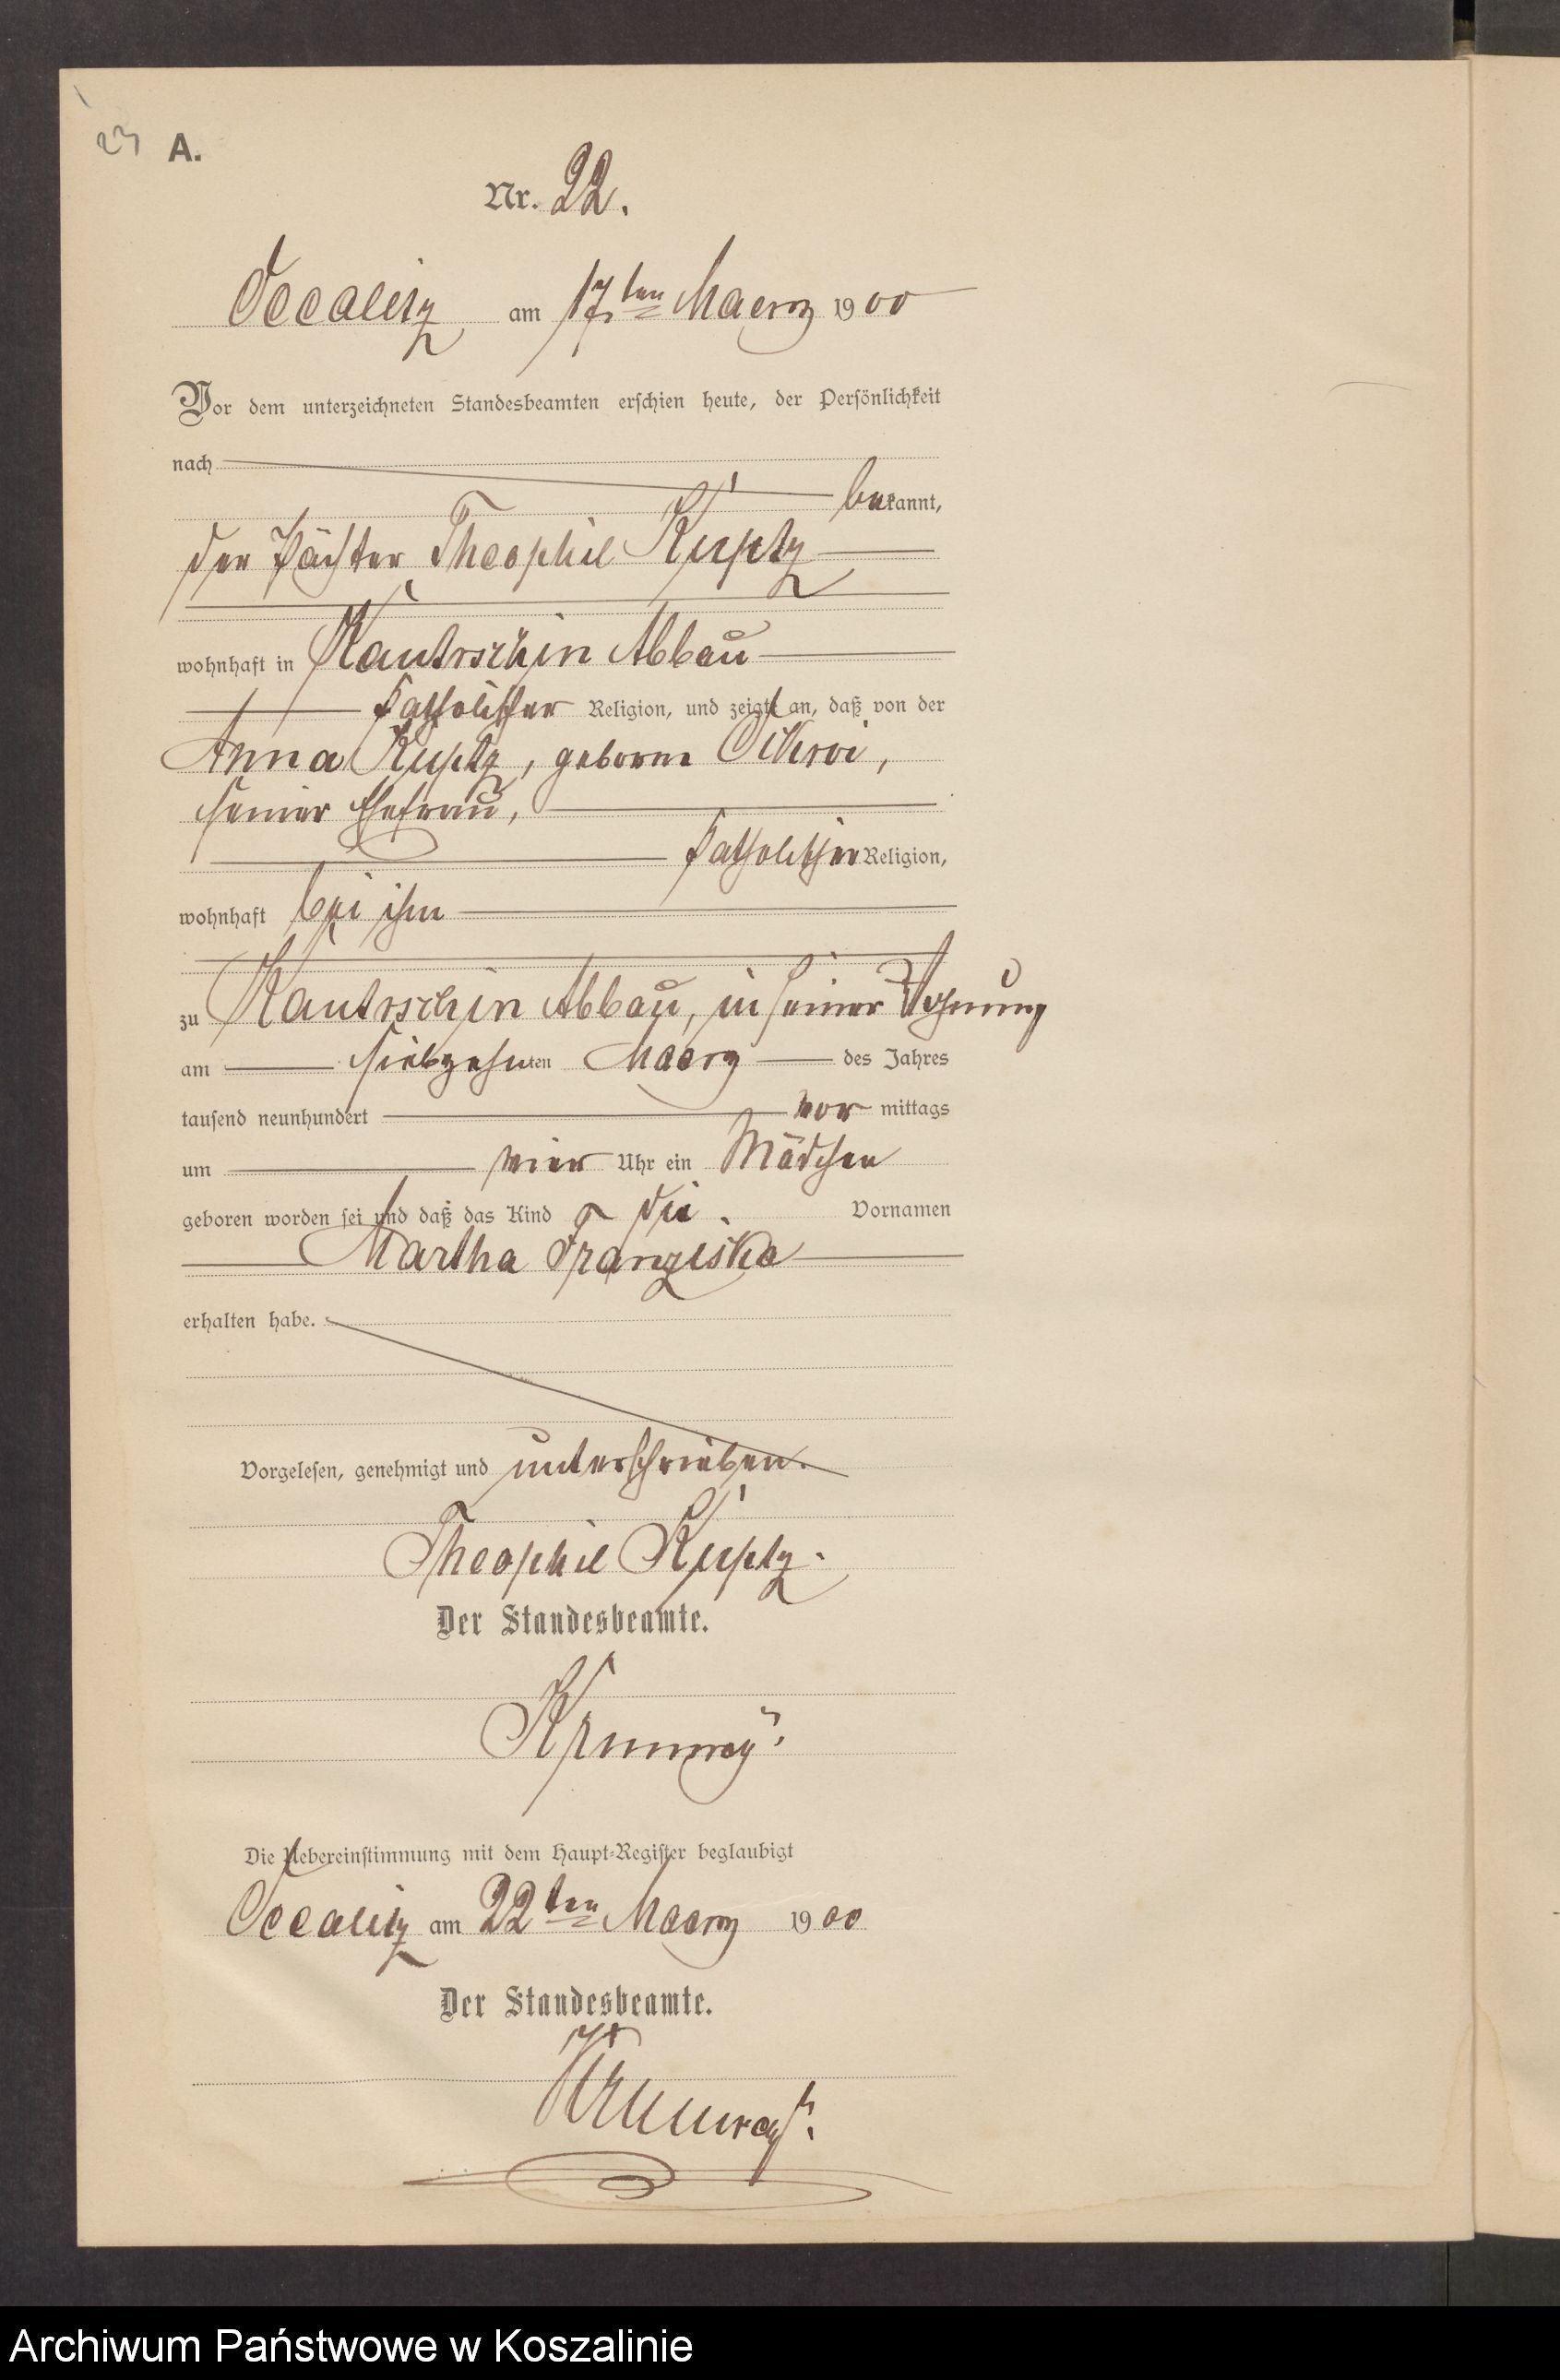 23 A.
Nr. 22.
Occalitz am 17ten Maerz 1900
Vor dem unterzeichneten Standesbeamten erschien heute, der Persönlichkeit
nach
bekannt,
der Pächter Theophil Kuptz
wohnhaft in Kantrschin Abbau
katholischer Religion, und zeigte an, daß von der
Anna Kuptz, geborne
seiner Ehefrau,
katholischer Religion,
wohnhaft bei ihm
zu Kantrschin Abbau, in seiner Wohnung
am siebzehnten Maerz des Jahres
tausend neunhundert vor mittags
um vier Uhr ein Mädchen
geboren worden sei und daß das Kind die Vornamen
Martha Franziska
erhalten habe.
Vorgelesen, genehmigt und unterschrieben.
Theophil Kuptz.
Der Standesbeamte.
Die Uebereinstimmung mit dem Haupt-Register beglaubigt
Occalitz am 22ten Maerz 1900
Der Standesbeamte.
Archiwum Państwowe w Koszalinie